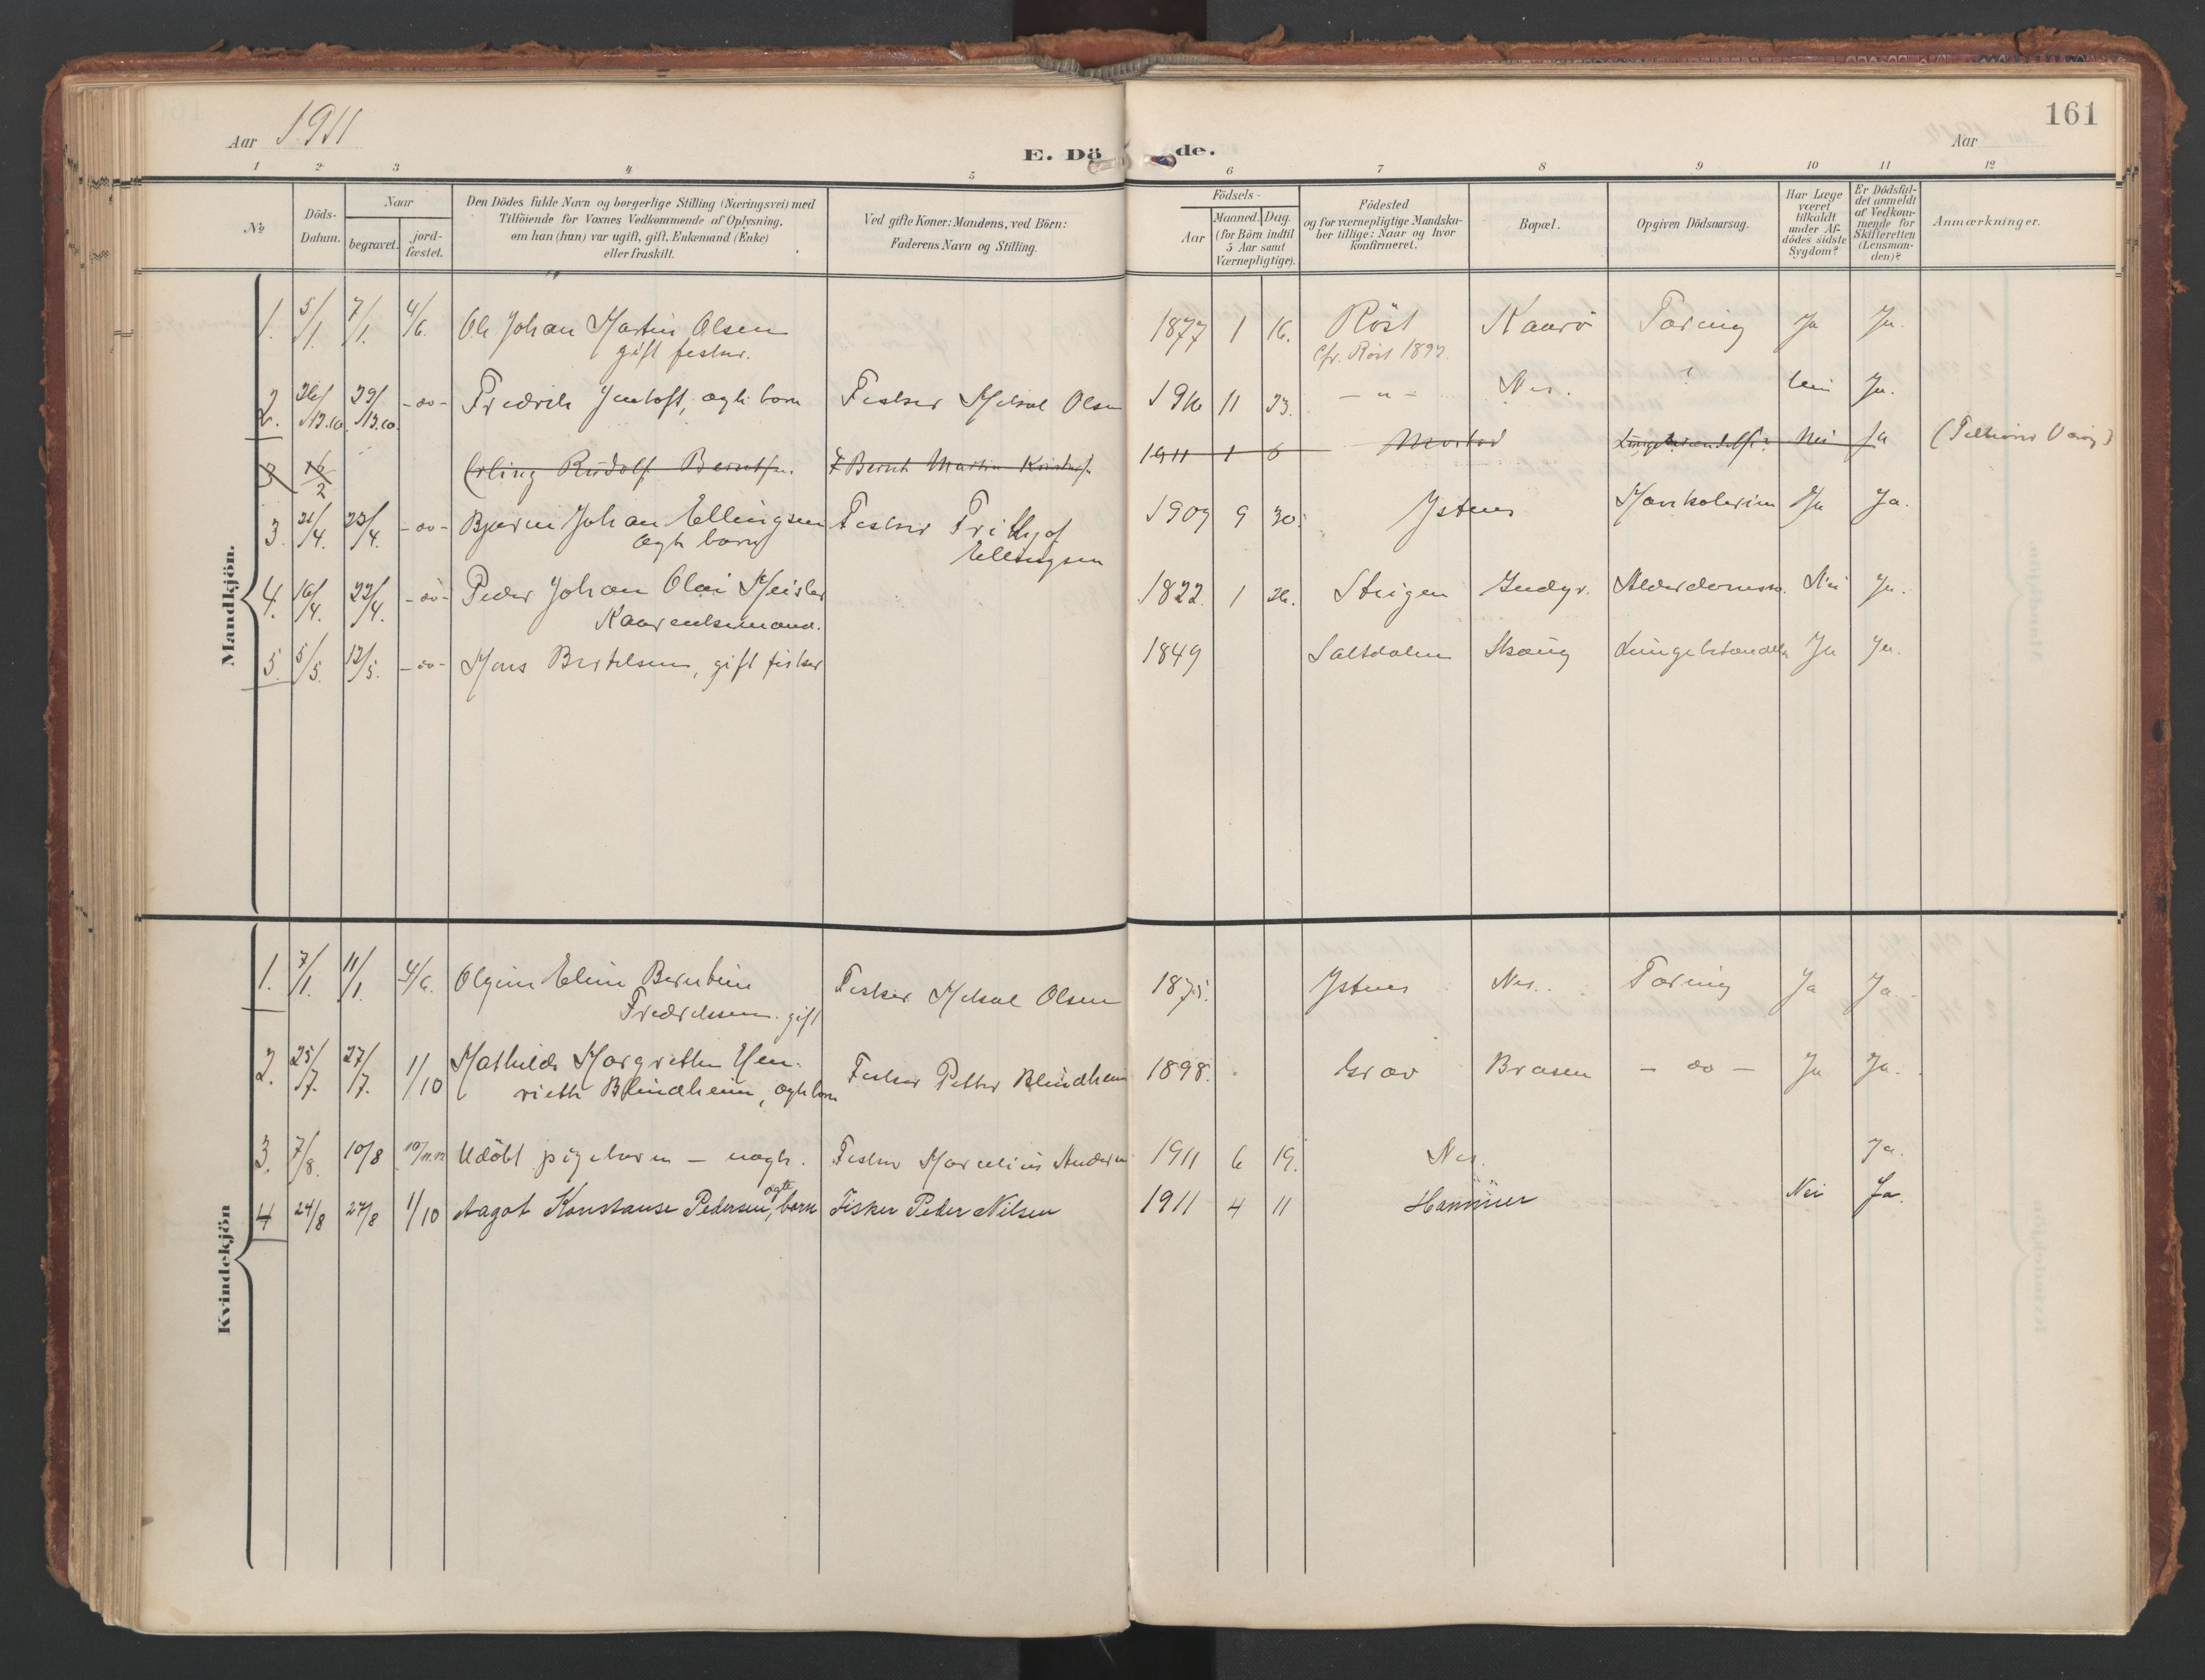 161
Aar 1911
E. Döde.
Aar
1 2 3 4 5 6 7 8 9 10 11 12
№
Döds-Datum.
Naar
begravet.
jord-fæstet.
Den Dödes fulde Navn og borgerlige Stilling (Næringsvei) med
Tilföiende for Voxnes Vedkommende af Oplysning,
om han (hun) var ugift, gift, Enkemand (Enke)
eller fraskilt.
Ved gifte Koner: Mandens, ved Börn:
Faderens Navn og Stilling.
Födsels-
Aar
Maaned. Dag.
(for Börn indtil
5 Aar samt
Værnepligtige).
Födested
og for værnepligtige Mandska-
ber tillige: Naar og hvor
Konfirmeret.
Bopæl.
Opgiven Dödsaarsag.
Har Læge
været
tilkaldt
under Af-
dödes sidste
Sygdom?
Er Dödsfal-
det anmeldt
af Vedkom-
mende for
Skifteretten
(Lensman-
den)?
Anmærkninger.
Mandkjön.
1. 5/1. 7/1. 4/6. Ole Johan Martin Olsen 1877 1 16. Röst Kaarö Tæring Ja Ja.
gift fisker. Cfr. Röst 1892.
2. 26/12.10. 29/12.10. -do- Fredrik Jentoft, ægte barn Fisker Mikal Olsen 1910 11 23. -"- Nes. ? Nei Ja.
3 12/2 Erling Rudolf Berntsen. F Bernt Martin Kristens. 1911 1 6 Mostad Lungebetændelse? Nei Ja
3. 21/4. 23/4. -do- Bjarne Johan Ellingsen Fisker Frithjof 1909 9 30. Ystnes Ja Ja.
ægte barn Ellingsen
4. 16/4. 22/4. -do- Peder Johan Olai Heisler 1822. 1 26. Steigen Alderdomssv. Nei Ja.
Kaarenkemand.
5. 5/5. 12/5. -do- Hans Bertelsen, gift fisker 1849 Saltdalen Lungebetændelse Ja Ja.
Kvindekjön
1. 7/1. 11/1. 4/6. Olgine Eline Berntine Fisker Mikal Olsen 1875. Ystnes Nes. Tæring Ja Ja.
Fredriksen. gift
2. 25/7. 27/7. 1/10 Mathilde Margrethe Hen- Fisker Petter Blindheim 1898. Grav Brasen -do- Ja Ja.
riette Blindheim, ægte barn
3. 7/8. 10/8 Udöbt pigebarn - uægte. Fisker Marcelius Andersen 1911 6 19. Nes. Ja.
4 24/8 27/8 1/10 Aagot Konstanse Pedersen, ægte barn Fisker Peder Nilsen 1911 4 11 Hammer Nei Ja.